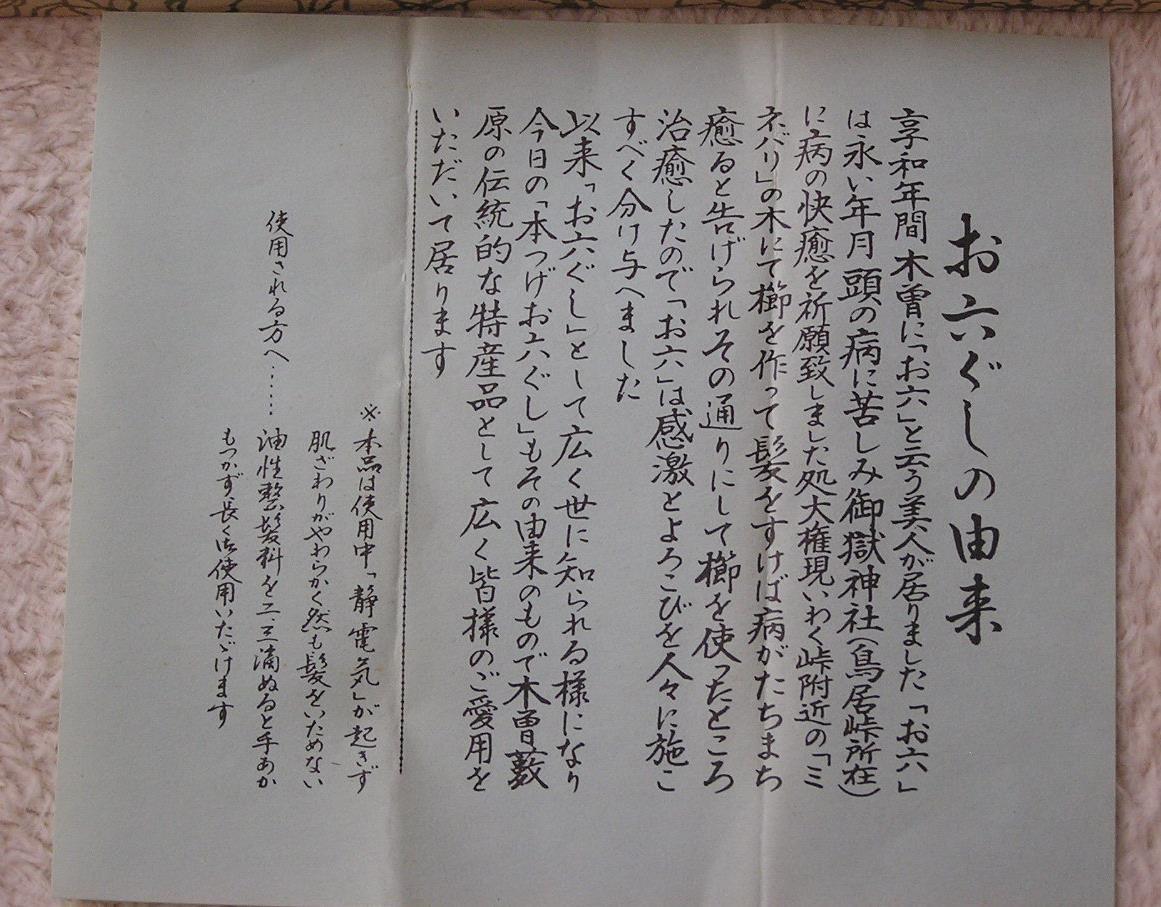 お六ぐしの由来
享和年間木曽に「お六」と云う美人が居りました「お六」
は永い年月頭の病に苦しみ御獄神社(鳥居峠所在)
に病の快癒を祈願致しました処大権現いわく峠附近の「ミ
ネバリ」の木にて櫛を作って髪をすけば病がたちまち
癒ると告げられその通りにして櫛を使ったところ
治癒したので「お六」は感激とよろこびを人々に施こ
すべく分け与へました
以来「お六ぐし」として広く世に知られる様になり
今日の「本つげお六ぐし」もその由来のもので木曽藪
原の伝統的な特産品として広く皆様のご愛用を
いただいて居ります
※本品は使用中「静電気」が起きず
肌ざわりがやわらかく然も髪をいためない
使用される方へ‥‥‥油性整髪料を二・三滴ぬると手あか
もつかず長く御使用いたゞけます